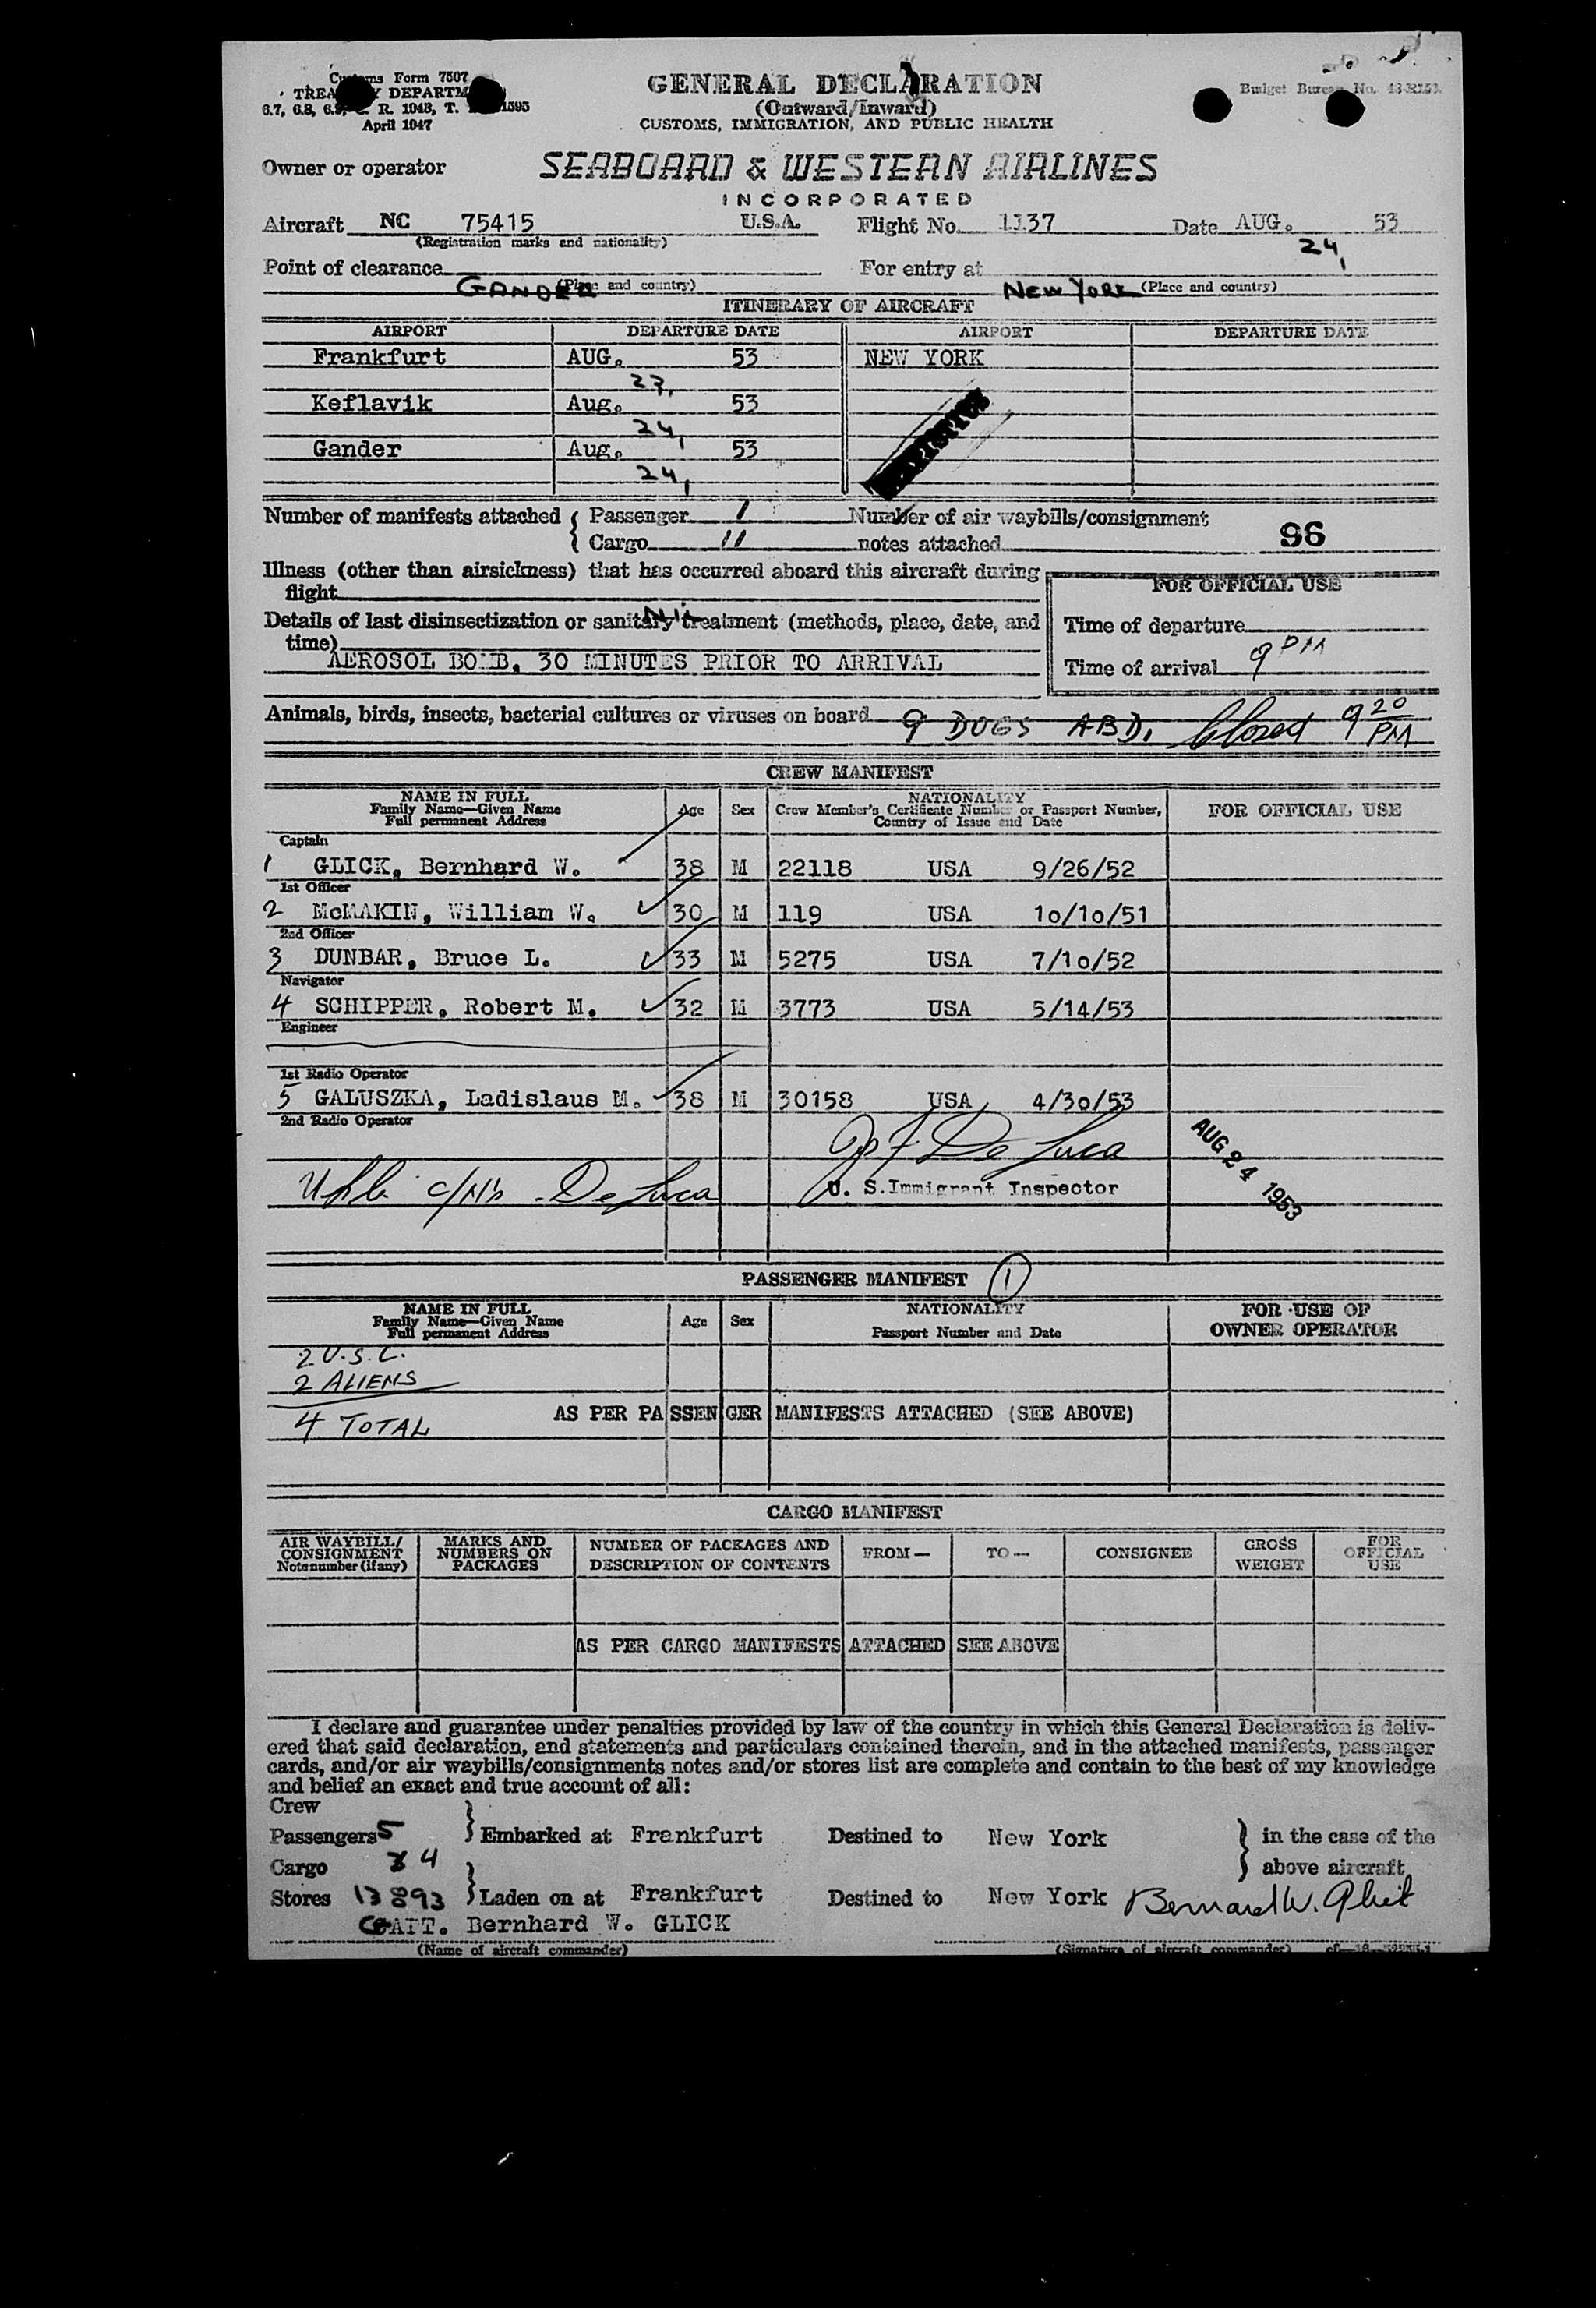 Customs Form 7507
TREASURY DEPARTMENT
6.7, 6.8, 6.9, C. R. 1043, T. 1595
April 1947
GENERAL DECLARATION
(Outward/Inward)
CUSTOMS, IMMIGRATION, AND PUBLIC HEALTH
Budget Bureau No.
Owner or operator SEABOARD & WESTERN AIRLINES
INCORPORATED
Aircraft NC 75415 U.S.A. Flight No. 1137 Date AUG. 24, 53
(Registration marks and nationality)
Point of clearance GANDER For entry at NEW YORK
(Place and country) (Place and country)
ITINERARY OF AIRCRAFT
AIRPORT DEPARTURE DATE AIRPORT DEPARTURE DATE
Frankfurt AUG. 23, 53 NEW YORK
Keflavik Aug. 24, 53
Gander Aug. 24, 53
Number of manifests attached { Passenger 1 Number of air waybills/consignment
Cargo 11 notes attached 96
Illness (other than airsickness) that has occurred aboard this aircraft during
flight Nil
FOR OFFICIAL USE
Details of last disinsectization or sanitary treatment (methods, place, date, and
time)
AEROSOL BOMB. 30 MINUTES PRIOR TO ARRIVAL
Time of departure
Time of arrival 9 PM
Animals, birds, insects, bacterial cultures or viruses on board 9 DOGS ABD. Closed 9 20 PM
CREW MANIFEST
NAME IN FULL
Family Name—Given Name
Full permanent Address
Age Sex
NATIONALITY
Crew Member's Certificate Number or Passport Number,
Country of Issue and Date
FOR OFFICIAL USE
Captain
1 GLICK, Bernhard W. 38 M 22118 USA 9/26/52
1st Officer
2 McMAKIN, William W. 30 M 119 USA 10/10/51
2nd Officer
3 DUNBAR, Bruce L. 33 M 5275 USA 7/10/52
Navigator
4 SCHIPPER, Robert M. 32 M 3773 USA 5/14/53
Engineer
1st Radio Operator
5 GALUSZKA, Ladislaus M. 38 M 30158 USA 4/30/53
2nd Radio Operator
De Luca
AUG 24 1953
c/N's De Luca
U. S. Immigrant Inspector
PASSENGER MANIFEST 1
NAME IN FULL
Family Name—Given Name
Full permanent Address
Age Sex
NATIONALITY
Passport Number and Date
FOR USE OF
OWNER OPERATOR
2 U.S.C.
2 ALIENS
4 TOTAL AS PER PASSENGER MANIFESTS ATTACHED (SEE ABOVE)
CARGO MANIFEST
AIR WAYBILL/
CONSIGNMENT
Note number (if any)
MARKS AND
NUMBERS ON
PACKAGES
NUMBER OF PACKAGES AND
DESCRIPTION OF CONTENTS
FROM— TO— CONSIGNEE
GROSS
WEIGHT
FOR
OFFICIAL
USE
AS PER CARGO MANIFESTS ATTACHED SEE ABOVE
I declare and guarantee under penalties provided by law of the country in which this General Declaration is deliv-
ered that said declaration, and statements and particulars contained therein, and in the attached manifests, passenger
cards, and/or air waybills/consignments notes and/or stores list are complete and contain to the best of my knowledge
and belief an exact and true account of all:
Crew
Passengers 5 } Embarked at Frankfurt Destined to New York } in the case of the
Cargo 4 above aircraft
Stores 13893 } Laden on at Frankfurt Destined to New York Bernard W. Glick
CAPT. Bernhard W. GLICK
(Name of aircraft commander) (Signature of aircraft commander)